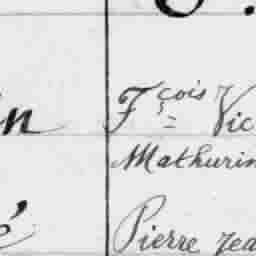 in Fçois Vic
Mathurin
é Pierre Jea